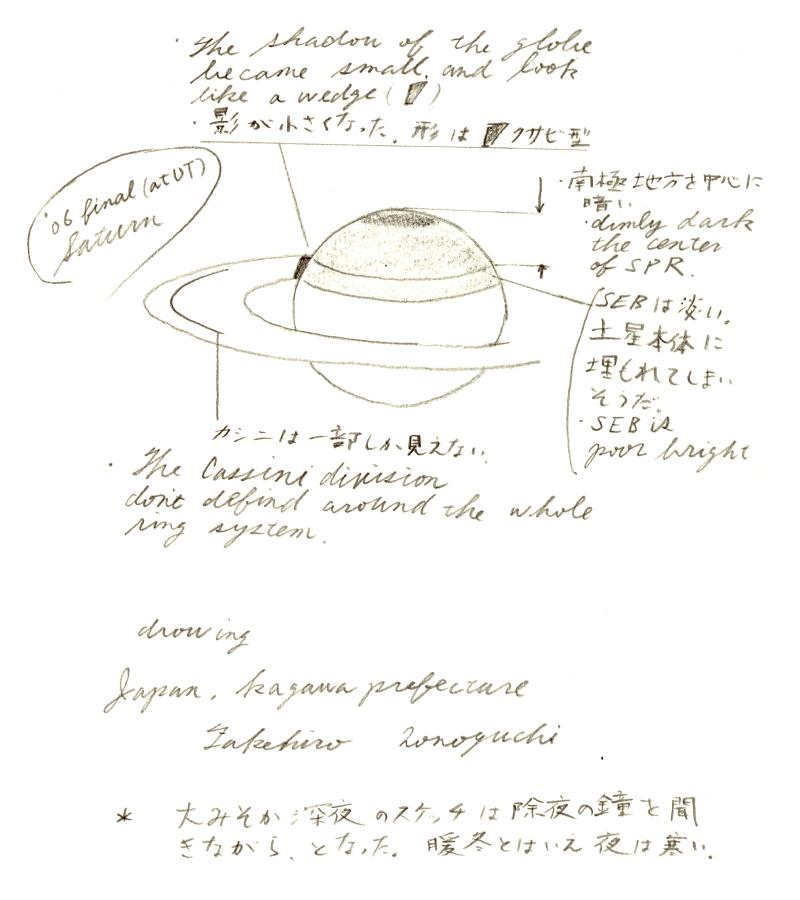 · The shadow of the globe
became small, and look
like a wedge ( )
· 影が小さくなった。形は クサビ型
'06 final (at UT)
Saturn
· 南極地方を中心に
暗い
· dimly dark
the center
of SPR.
SEBは淡い。
土星本体に
埋もれてしまい
そうだ。
· SEB is
poor bright
カシニは一部しか見えない。
· The Cassini division
don't defind around the whole
ring system.
drowing
Japan, Kagawa prefecture
Takehiro
* 大みそか深夜のスケッチは除夜の鐘を聞
きながら、となった。暖冬とはいえ夜は寒い。